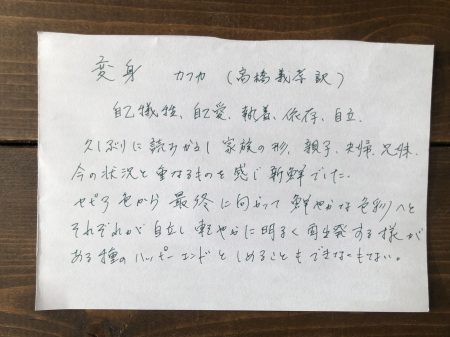 変身 カフカ (高橋義孝訳)
自己犠牲、自己愛、執着、依存、自立、
久しぶりに読みかえし 家族の形、親子、夫婦、兄妹、
今の状況と重なるものを感じ新鮮でした。
セピア色から 最終に向かって 鮮やかな色彩へと
それぞれが自立し 軽やかに明るく 再出発する様が
ある種のハッピーエンドと しめることもできなくもない。